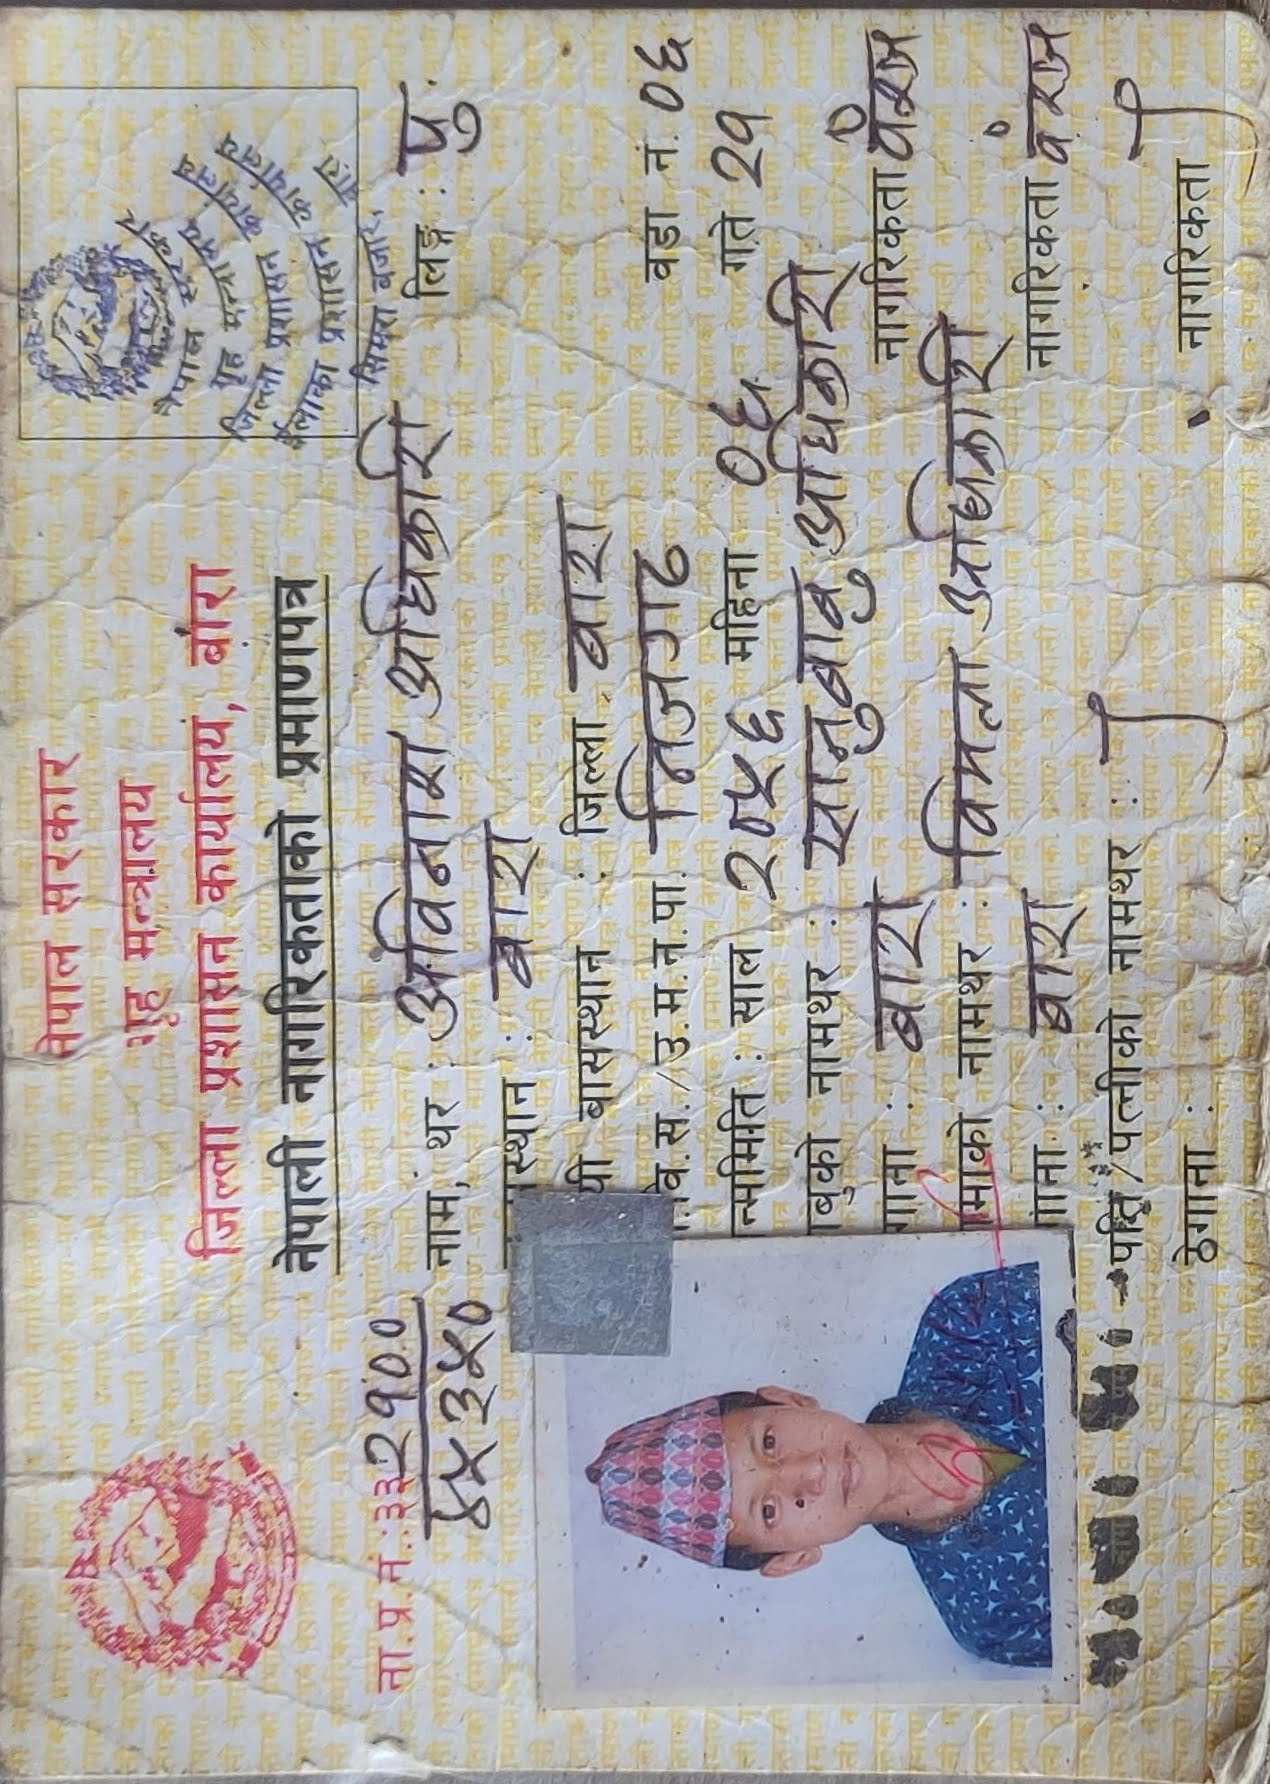 नेपाल सरकार
गृह मन्त्रालय
जिल्ला प्रशासन कार्यालय, बारा
नेपाली नागरिकताको प्रमाणपत्र
नेपाल सरकार
गृह मन्त्रालय
जिल्ला प्रशासन कार्यालय
ईलाका प्रशासन कार्यालय
सिमरा बजार, बारा
ना.प्र.नं.:३३२१००
४५३५०
नाम, थर : अविनाश अधिकारी लिङ्ग : पु.
स्थान : बारा
यी बासस्थान : जिल्ला बारा
वि.स./उ.म.न.पा. निजगढ वडा नं. ०६
न्ममिति : साल २०५६ महिना ०६ गते २१
बुको नामथर : सानुबाबु अधिकारी
गाना : बारा नागरिकता वंशज
माको नामथर : विमला अधिकारी
गाना : बारा नागरिकता वंशज
पति/पत्नीको नामथर :
ठेगाना : नागरिकता